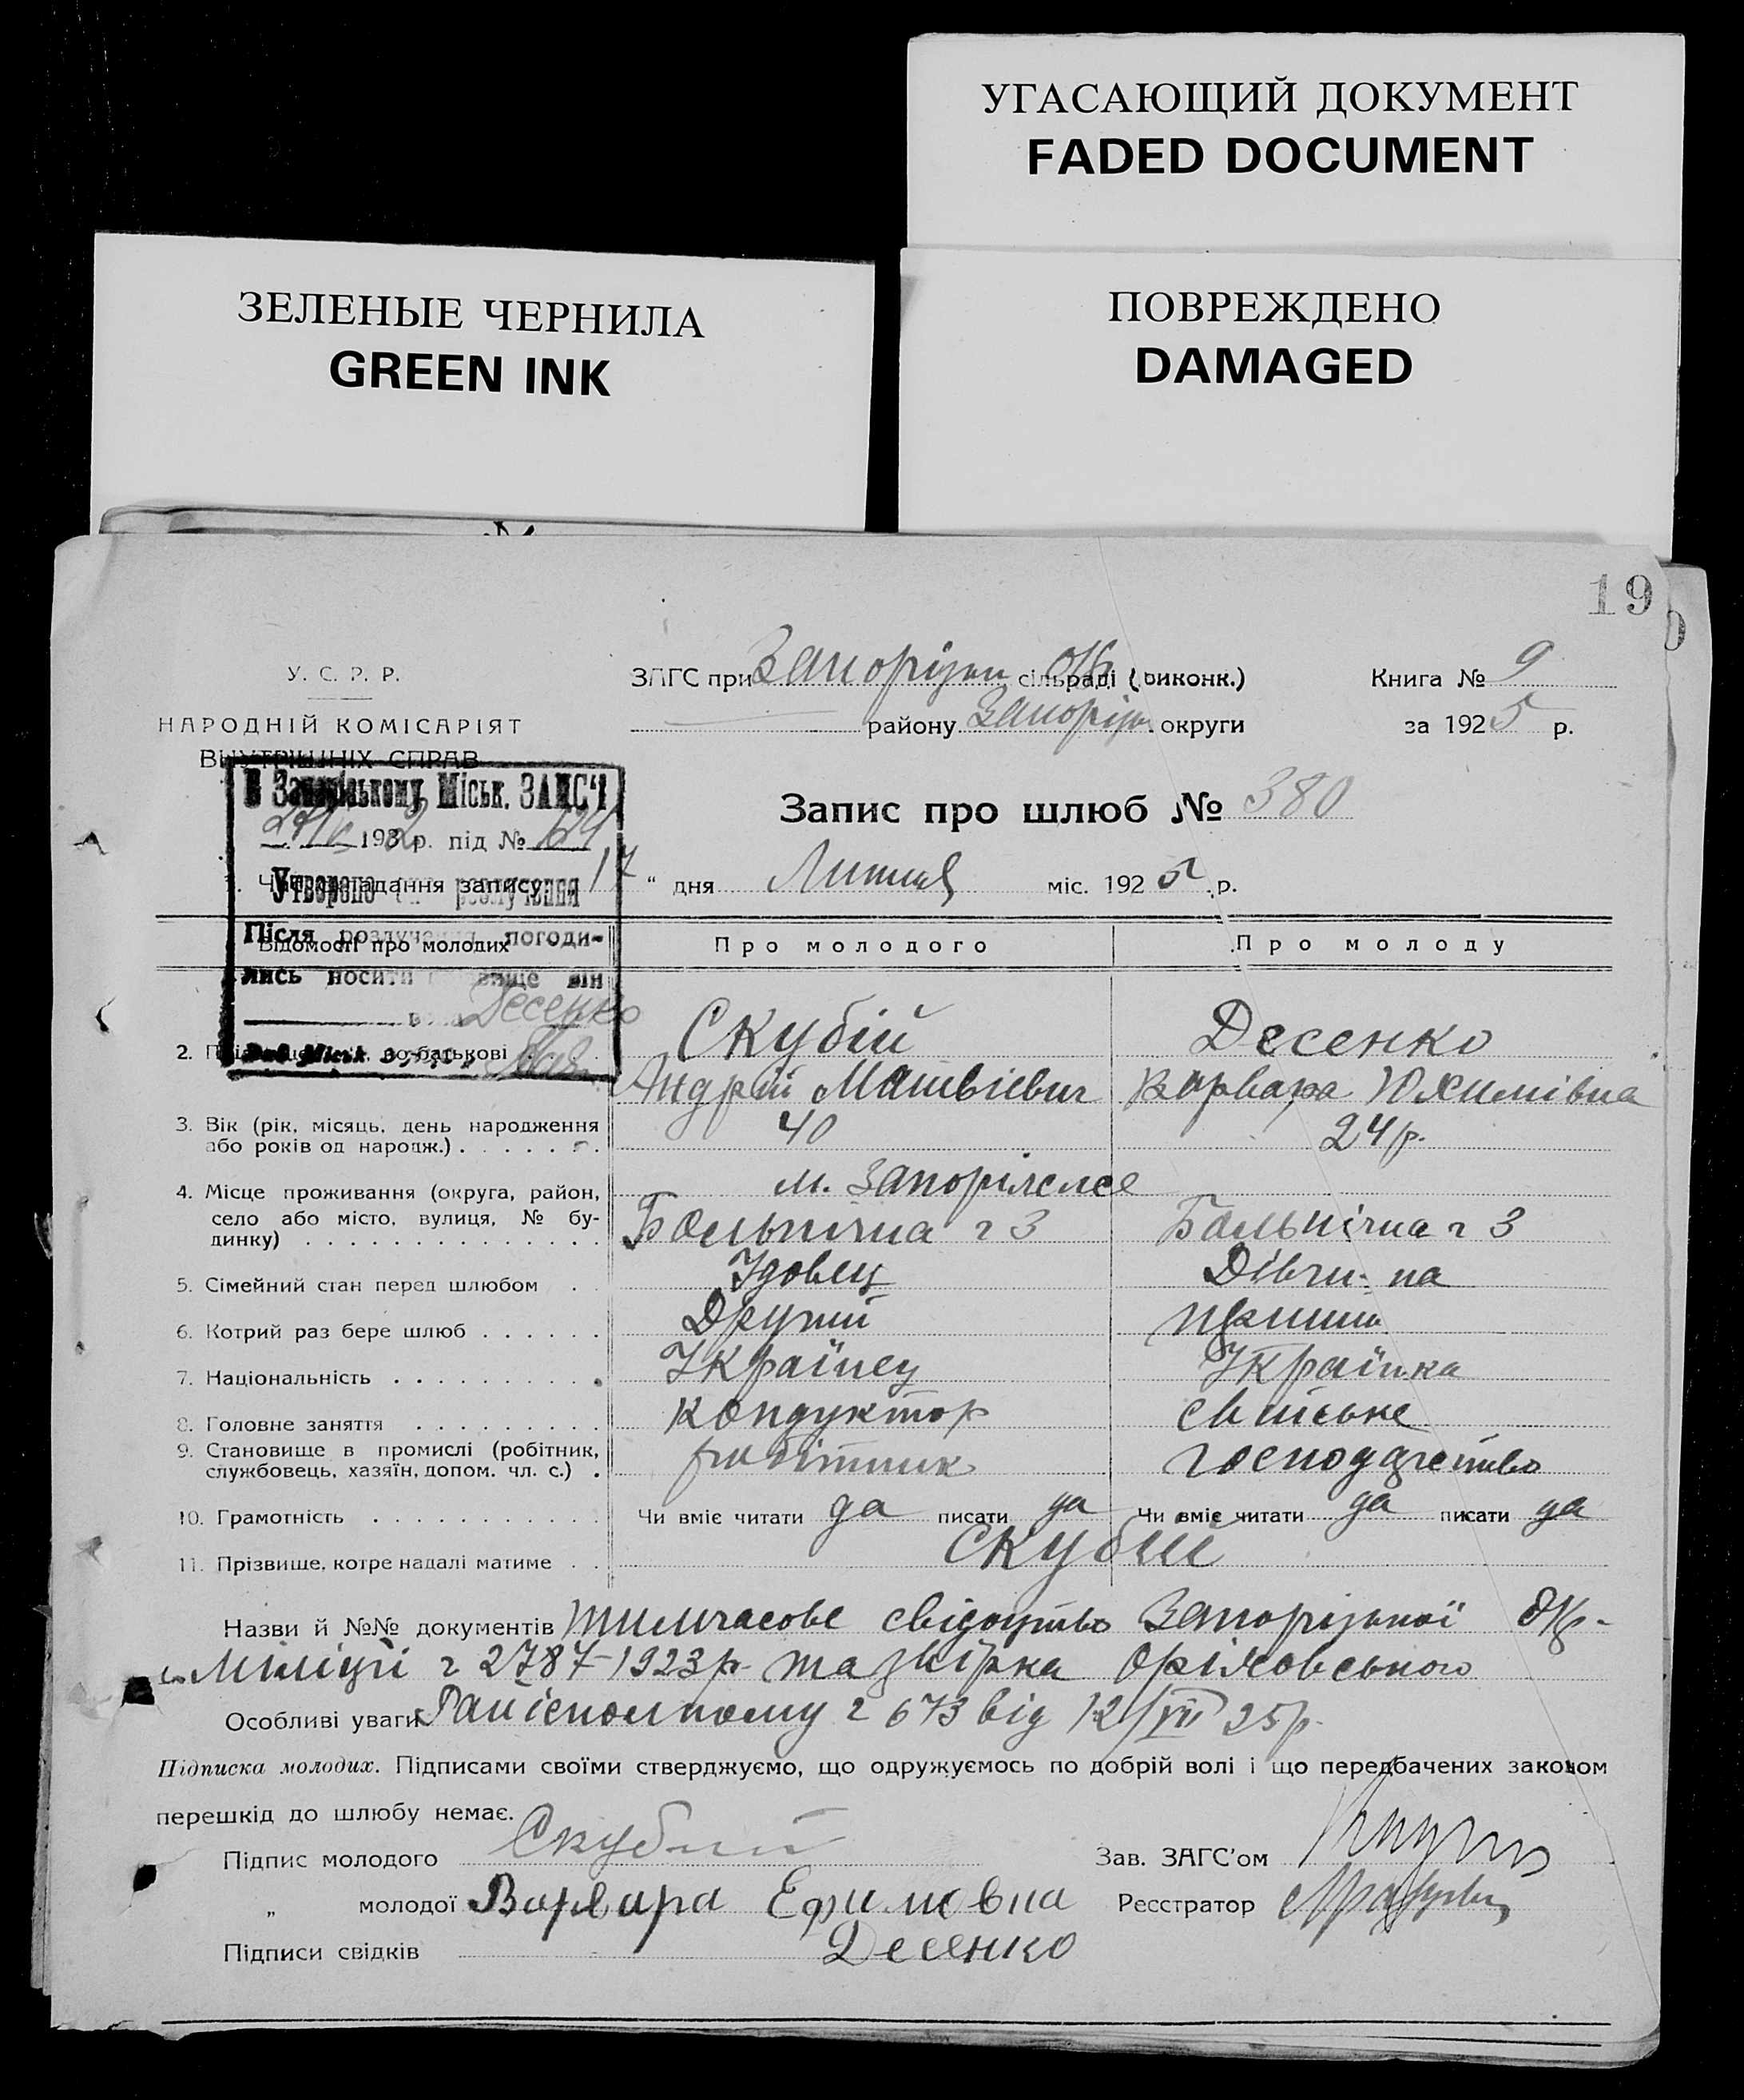 УГАСАЮЩИЙ ДОКУМЕНТ
FADED DOCUMENT
ЗЕЛЕНЫЕ ЧЕРНИЛА
GREEN INK
ПОВРЕЖДЕНО
DAMAGED
19
У. С. Р. Р.
НАРОДНІЙ КОМІСАРІЯТ
ВНУТРІШНІХ СПРАВ
ЗАГС при Запорізьк сільраді (виконк.)
району Запорізь округи
Книга № 9
за 1925 р.
В Запорізькому Міськ. ЗАГС'і
193 р. під №
Утворено розлучення
Після розлучення погоди-
лись носити прізвище він
вона Десенко
Запис про шлюб № 380
1. Час складання запису „17“ дня Липня міс. 1925 р.
Відомості про молодих Про молодого Про молоду
2. по-батькові Скубій Десенко
Андрій Матвієвич Варвара Юхимівна
3. Вік (рік, місяць, день народження
або років од народж.) 40 24 р.
4. Місце проживання (округа, район,
село або місто, вулиця, № бу-
динку) м. Запоріжжє
Больнічна ч 3 Больнічна ч 3
5. Сімейний стан перед шлюбом Удовець Дівчи-на
6. Котрий раз бере шлюб Другий перший
7. Національність Українец Українка
8. Головне заняття кондуктор сільське
9. Становище в промислі (робітник,
службовець, хазяїн, допом. чл. с.) робітник господарство
10. Грамотність Чи вміє читати да писати да Чи вміє читати да писати да
11. Прізвище, котре надалі матиме Скубій
Назви й №№ документів тимчасове свідоцтво Запорізької Окр-
Міліції ч 2787-1923 р. та звірка Оріховського
Особливі уваги Райісполкому ч 673 від 12/VII 25 р.
Підписка молодих. Підписами своїми стверджуємо, що одружуємось по добрій волі і що передбачених законом
перешкід до шлюбу немає.
Підпис молодого Скубий
Зав. ЗАГС'ом
„ молодої Варвара Ефимовна
Десенко
Реєстратор
Підписи свідків